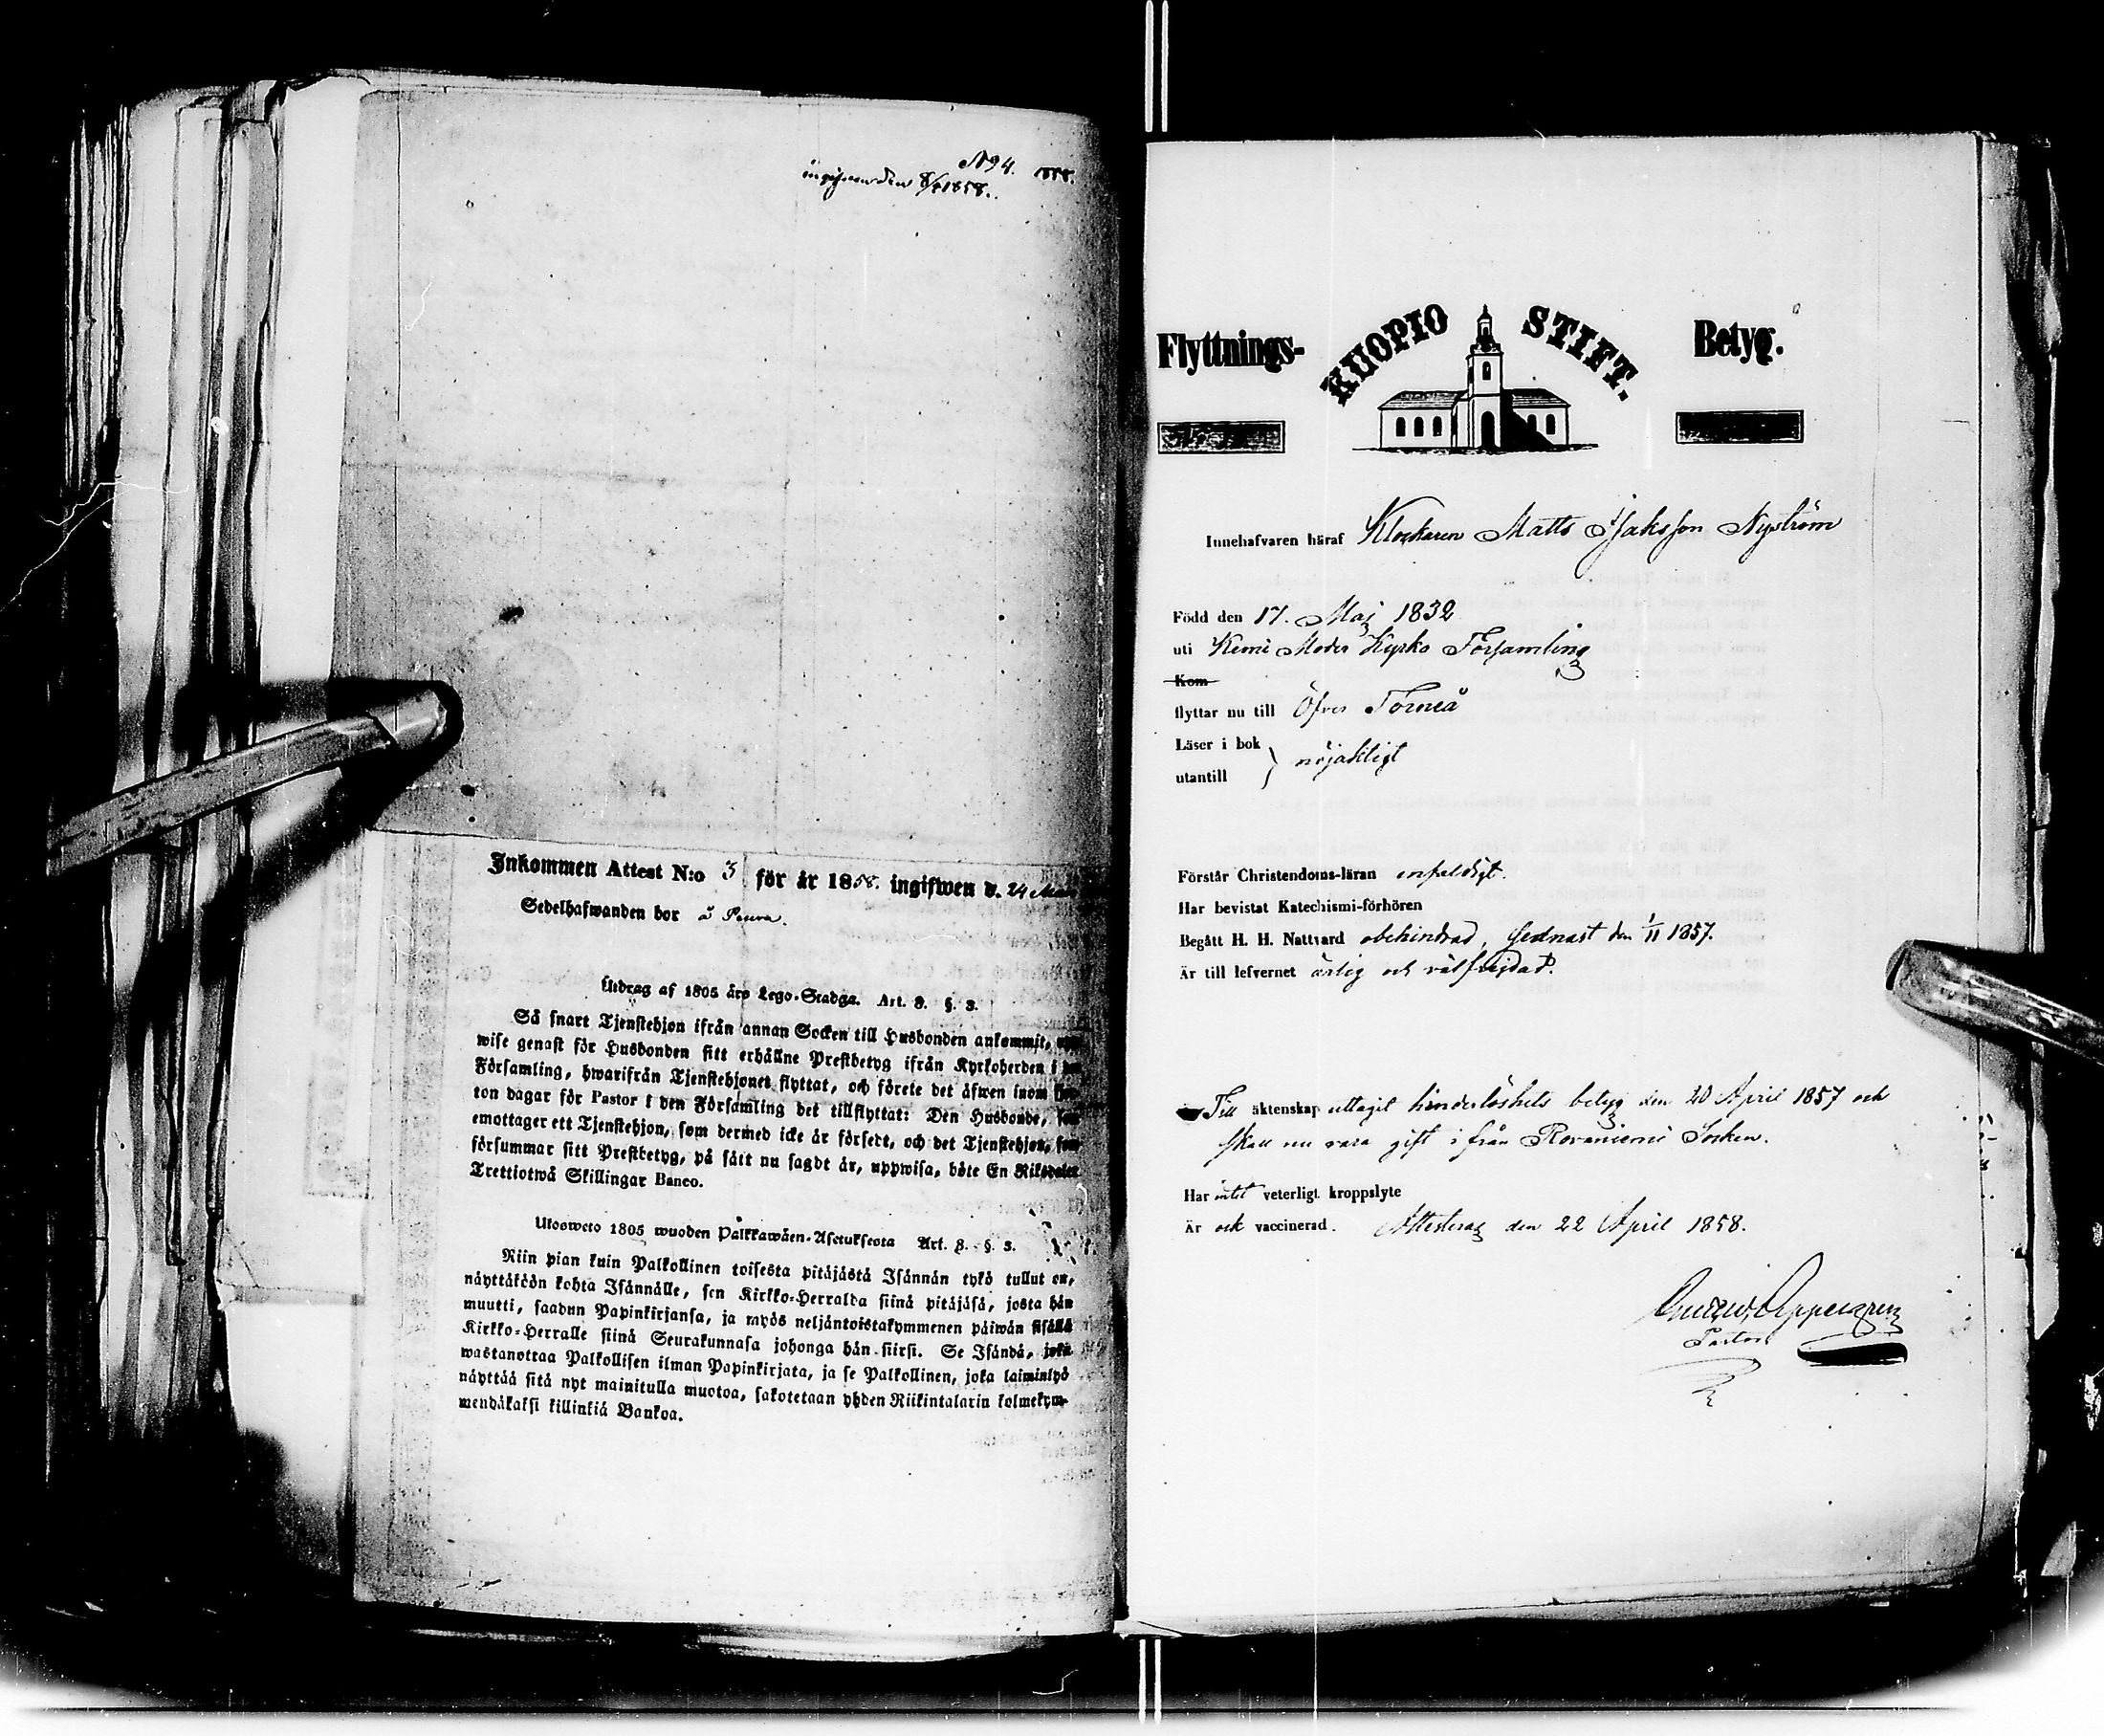 N 94. 1858.
ingifven den 8/5 1858.
Inkommen Attest N:o 3 för år 1858. ingifwen d. 24
Sedelhafwanden bor å
Utdrag af 1805 års Lego-Stadga. Art. 8. §. 3.
Så snart Tjenstehjon ifrån annan Socken till Husbonden ankommit,
wise genast för Husbonden sitt erhållne Prestbetyg ifrån Kyrkoherden i
Församling, hwarifrån Tjenstehjonet flyttat, och förete det äfwen inom
ton dagar för Pastor i den Församling det tillflyttat: Den Husbonde,
emottager ett Tjenstehjon, som dermed icke är försedt, och det Tjenstehjon, som
försummar sitt Prestbetyg, på sätt nu sagdt är, uppwisa, böte En Riksdaler
Trettiotwå Skillingar Banco.
Ulosweto 1805 wuoden Palkkawäen-Asetuksesta Art. 8. §. 3.
Niin pian kuin Palkollinen toisesta pitäjästä Isännän tykö tullut on,
näyttäköön kohta Isännälle, sen Kirkko-Herralda siinä pitäjäsä, josta hän
muutti, saadun Papinkirjansa, ja myös neljäntoistakymmenen päiwän sisällä
Kirkko-Herralle siinä Seurakunnasa johonga hän siirsi. Se Isändä, joka
wastanottaa Palkollisen ilman Papinkirjata, ja se Palkollinen, joka laiminlyö
näyttää sitä nyt mainitulla muotoa, sakotetaan yhden Riikintalarin kolmekym-
mendäkaksi killinkiä Bankoa.
Flyttnings- KUOPIO STIFT. Betyg.
Innehafvaren häraf Klockaren Matts Isaksson Nyström
Född den 17. Maj 1832
uti Kemi Moder Kyrko Församling
Kom
flyttar nu till Öfver Torneå
Läser i bok
utantill } nöjaktigt
Förstår Christendoms-läran enfaldigt.
Har bevistat Katechismi-förhören
Begått H. H. Nattvard obehindrad, sednast den 1/11 1857.
Är till lefvernet ärlig och välfrejdad.
Till äktenskap uttagit hinderlöshets betyg den 20 April 1857 och
skall nu vara gift i från Rovaniemi Socken.
Har intet veterligt kroppslyte
Är ock vaccinerad. Attesteras den 22 April 1858.
Pastor